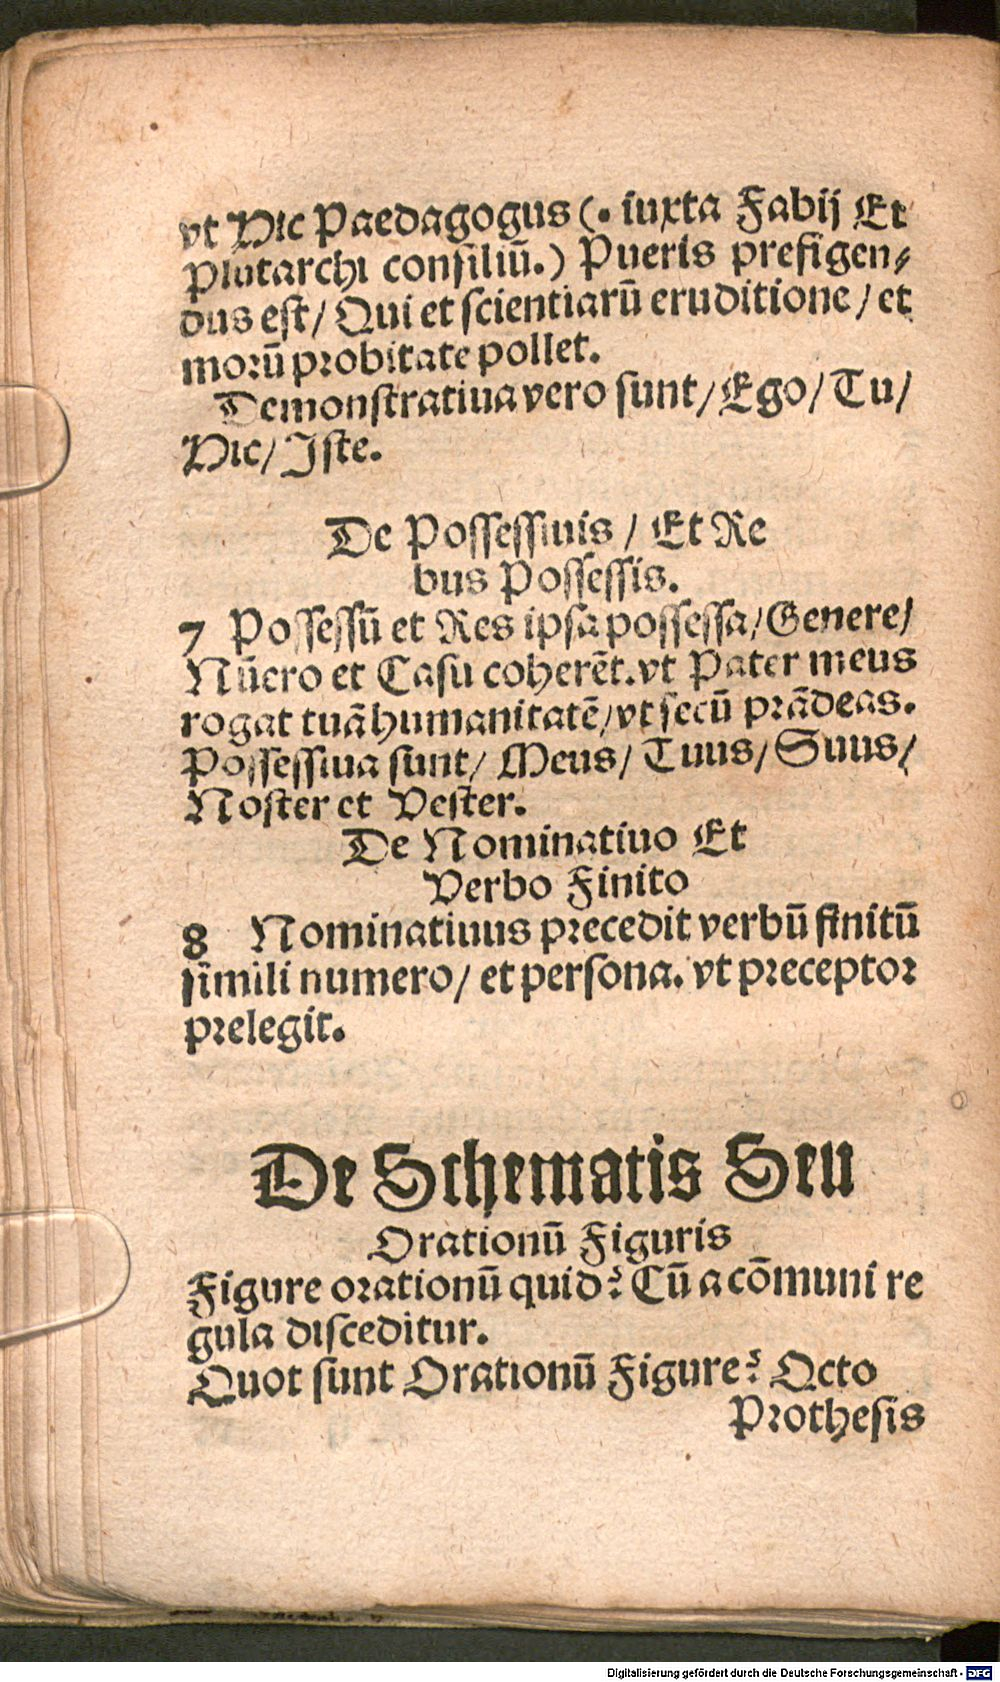 vt Hic Paedagogus (. iuxta Fabij Et
Plutarchi consiliū.) Pueris prefigen⸗
dus est/ Qui et scientiarū eruditione/ et
morū probitate pollet.
Demonstratiua vero sunt/ Ego/ Tu/
Hic/ Iste.
De Possessiuis / Et Re
bus Possessis.
7 Possessū et Res ipsa possessa/ Genere/
Nūero et Casu coherēt. vt Pater meus
rogat tuā humanitatē/ vt secū prādeas.
Possessiua sunt/ Meus/ Tuus/ Suus/
Noster et Vester.
De Nominatiuo Et
Verbo Finito
8 Nominatiuus precedit verbū finitū
simili numero/ et persona. vt preceptor
prelegit.
De Schematis Seu
Orationū Figuris
Figure orationū quid? Cū a cōmuni re
gula disceditur.
Quot sunt Orationū Figure? Octo
Prothesis
Digitalisierung gefördert durch die Deutsche Forschungsgemeinschaft - DFG